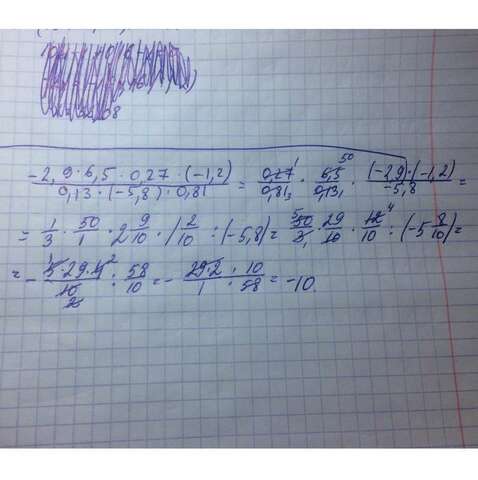 -2,9·6,5·0,27·(-1,2) / 0,13·(-5,8)·0,81 = 0,27 1 / 0,81 3 · 6,5 50 / 0,13 1 · (-2,9)·(-1,2) / -5,8 =
= 1/3 · 50/1 · 2 9/10 · 1 2/10 : (-5,8) = 5 50 / 3 1 · 29/10 · 12 4 / 10 : (-5 8/10) =
= - 1 5·29·4 2 / 10 2 : 58/10 = - 29·2/1 · 10/58 = -10.